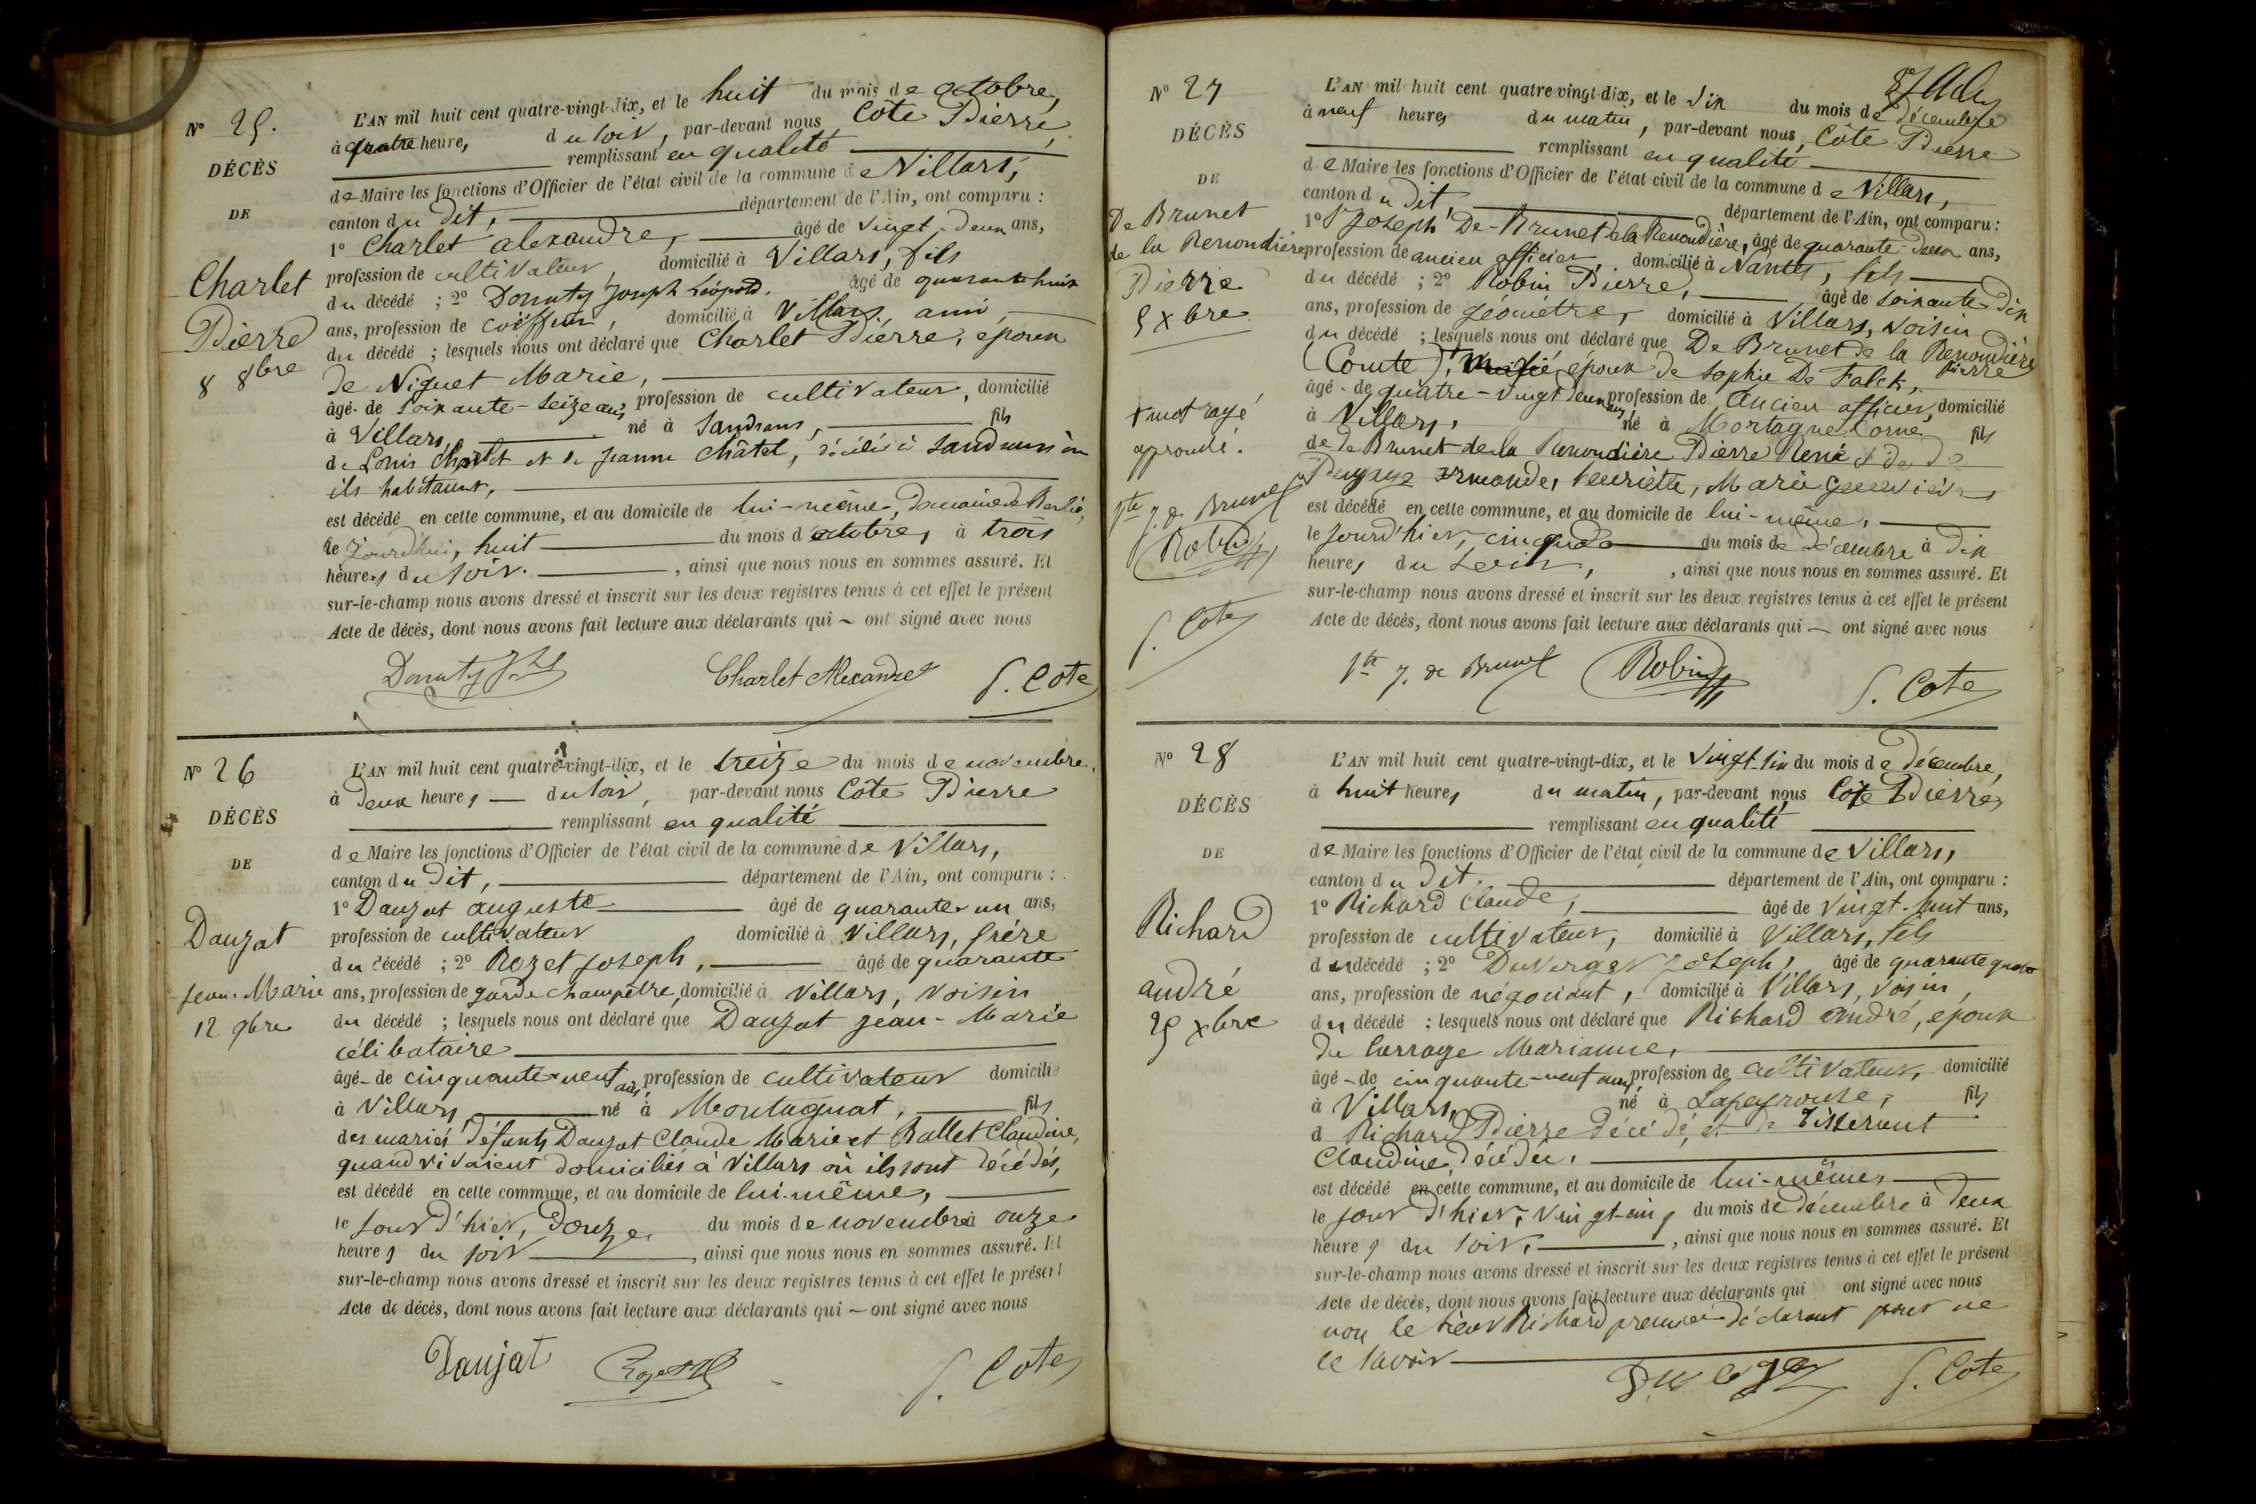 N° 25.
DÉCÈS
DE
Charlet
Pierre
8 8bre
L'AN mil huit cent quatre-vingt-dix, et le huit du mois de octobre,
à quatre heures, du soir, par-devant nous Côte Pierre,
remplissant en qualité
de Maire les fonctions d'Officier de l'état civil de la commune de Villars,
canton du dit, département de l'Ain, ont comparu :
1° Charlet alexandre, âgé de vingt-deux ans,
profession de cultivateur, domicilié à Villars, fils
du décédé ; 2° Donnuty Joseph Léopold, âgé de quarante huit
ans, profession de coiffeur, domicilié à Villars, ami,
du décédé ; lesquels nous ont déclaré que Charlet Pierre, epoux
de Niquet Marie,
âgé de soixante-seize ans, profession de cultivateur, domicilié
à Villars, né à Sandrans, fils
de Louis Charlet et de Jeanne Châtel, décédés à Sandrans où
ils habitaient,
est décédé en cette commune, et au domicile de lui-même, domaine de
le jourd'hui, huit du mois d'octobre, à trois
heures du soir. , ainsi que nous nous en sommes assuré. Et
sur-le-champ nous avons dressé et inscrit sur les deux registres tenus à cet effet le présent
Acte de décès, dont nous avons fait lecture aux déclarants qui ~ ont signé avec nous
Charlet Alexandre P. Cote
N° 26
DÉCÈS
DE
Dauzat
Jean-Marie
12 9bre
L'AN mil huit cent quatre-vingt-dix, et le treize du mois de novembre,
à deux heures, du soir, par-devant nous Côte Pierre
remplissant en qualité
de Maire les fonctions d'Officier de l'état civil de la commune de Villars,
canton du dit, département de l'Ain, ont comparu :
1° Dauzat auguste âgé de quarante-un ans,
profession de cultivateur domicilié à Villars, frère
du décédé ; 2° Rozet Joseph, âgé de quarante
ans, profession de garde champêtre, domicilié à Villars, voisin
du décédé ; lesquels nous ont déclaré que Dauzat Jean-Marie
célibataire
âgé de cinquante-neuf ans, profession de cultivateur domicilié
à Villars, né à Montagnat, fils
des mariés défunts Dauzat Claude Marie et Ballet Claudine,
quand vivaient domiciliés à Villars où ils sont décédés,
est décédé en cette commune, et au domicile de lui-même,
le jour d'hier, douze du mois de novembre à onze
heures du soir , ainsi que nous nous en sommes assuré. Et
sur-le-champ nous avons dressé et inscrit sur les deux registres tenus à cet effet le présent
Acte de décès, dont nous avons fait lecture aux déclarants qui ~ ont signé avec nous
Daujat P. Cote
N° 27
DÉCÈS
DE
De Brunet
de la Renoudière
Pierre
5 Xbre
+ mot rayé
approuvé.
J. de Brunet
Robin
P. Cote
L'AN mil huit cent quatre-vingt-dix, et le six du mois de décembre
à neuf heures du matin, par-devant nous, Côte Pierre
remplissant en qualité
de Maire les fonctions d'Officier de l'état civil de la commune de Villars,
canton du dit, département de l'Ain, ont comparu :
1° Joseph De-Brunet de la Renoudière, âgé de quarante-deux ans,
profession de ancien officier, domicilié à Nantes, fils
du décédé ; 2° Robin Pierre, âgé de soixante-dix
ans, profession de géomètre, domicilié à Villars, voisin
du décédé ; lesquels nous ont déclaré que De Brunet de la Renoudière
(Comte), Pierre époux de Sophie De Falck,
âgé de quatre-vingt deux ans profession de Ancien officier, domicilié
à Villars, né à Mortagne, fils
de De Brunet de la Renoudière Pierre René & de De
Ermonde, henriette, Marie Geneviève
est décédé en cette commune, et au domicile de lui-même,
le jourd'hier, cinq du mois de décembre à dix
heures du soir, , ainsi que nous nous en sommes assuré. Et
sur-le-champ nous avons dressé et inscrit sur les deux registres tenus à cet effet le présent
Acte de décès, dont nous avons fait lecture aux déclarants qui ~ ont signé avec nous
J. de Brunet Robin P. Cote
N° 28
DÉCÈS
DE
Richard
andré
25 Xbre
L'AN mil huit cent quatre-vingt-dix, et le vingt-six du mois de décembre,
à huit heures du matin, par-devant nous Côte Pierre,
remplissant en qualité
de Maire les fonctions d'Officier de l'état civil de la commune de Villars,
canton du dit. département de l'Ain, ont comparu :
1° Richard Claude, âgé de vingt-huit ans,
profession de cultivateur, domicilié à Villars, fils
du décédé ; 2° Duverger Joseph, âgé de quarante quatre
ans, profession de négociant, domicilié à Villars, voisin,
du décédé ; lesquels nous ont déclaré que Richard André, epoux
de Marianne,
âgé de cinquante-neuf ans, profession de cultivateur, domicilié
à Villars, né à Lapeyrouse, fils
d Richard Pierre décédé, et de Tisserent
Claudine, décédée.
est décédé en cette commune, et au domicile de lui-même,
le jour d'hier, vingt-cinq du mois de décembre à deux
heures du soir, , ainsi que nous nous en sommes assuré. Et
sur-le-champ nous avons dressé et inscrit sur les deux registres tenus à cet effet le présent
Acte de décès, dont nous avons fait lecture aux déclarants qui ont signé avec nous
non le sieur Richard premier déclarant pour ne
le savoir
Duverger P. Cote